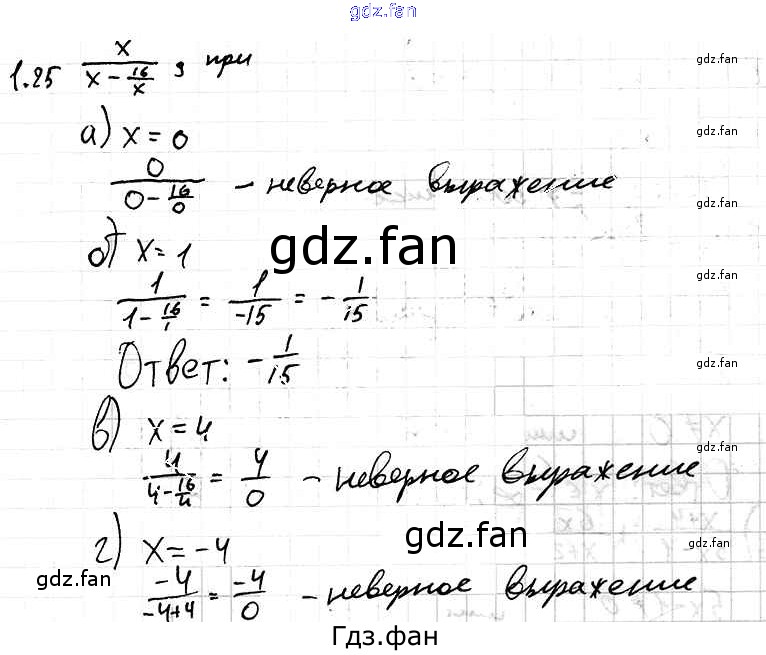 gdz.fan
1.25 x / (x - 16/x), при
gdz.fan
а) x = 0
gdz.fan
0 / (0 - 16/0) - неверное выражение
gdz.fan
gdz.fan
б) x = 1
gdz.fan
1 / (1 - 16/1) = 1/-15 = - 1/15
Ответ: - 1/15
gdz.fan
в) x = 4
gdz.fan
4 / (4 - 16/4) = 4/0 - неверное выражение
gdz.fan
gdz.fan
г) x = -4
gdz.fan
-4 / -4+4 = -4/0 - неверное выражение
gdz.fan
Гдз.фан